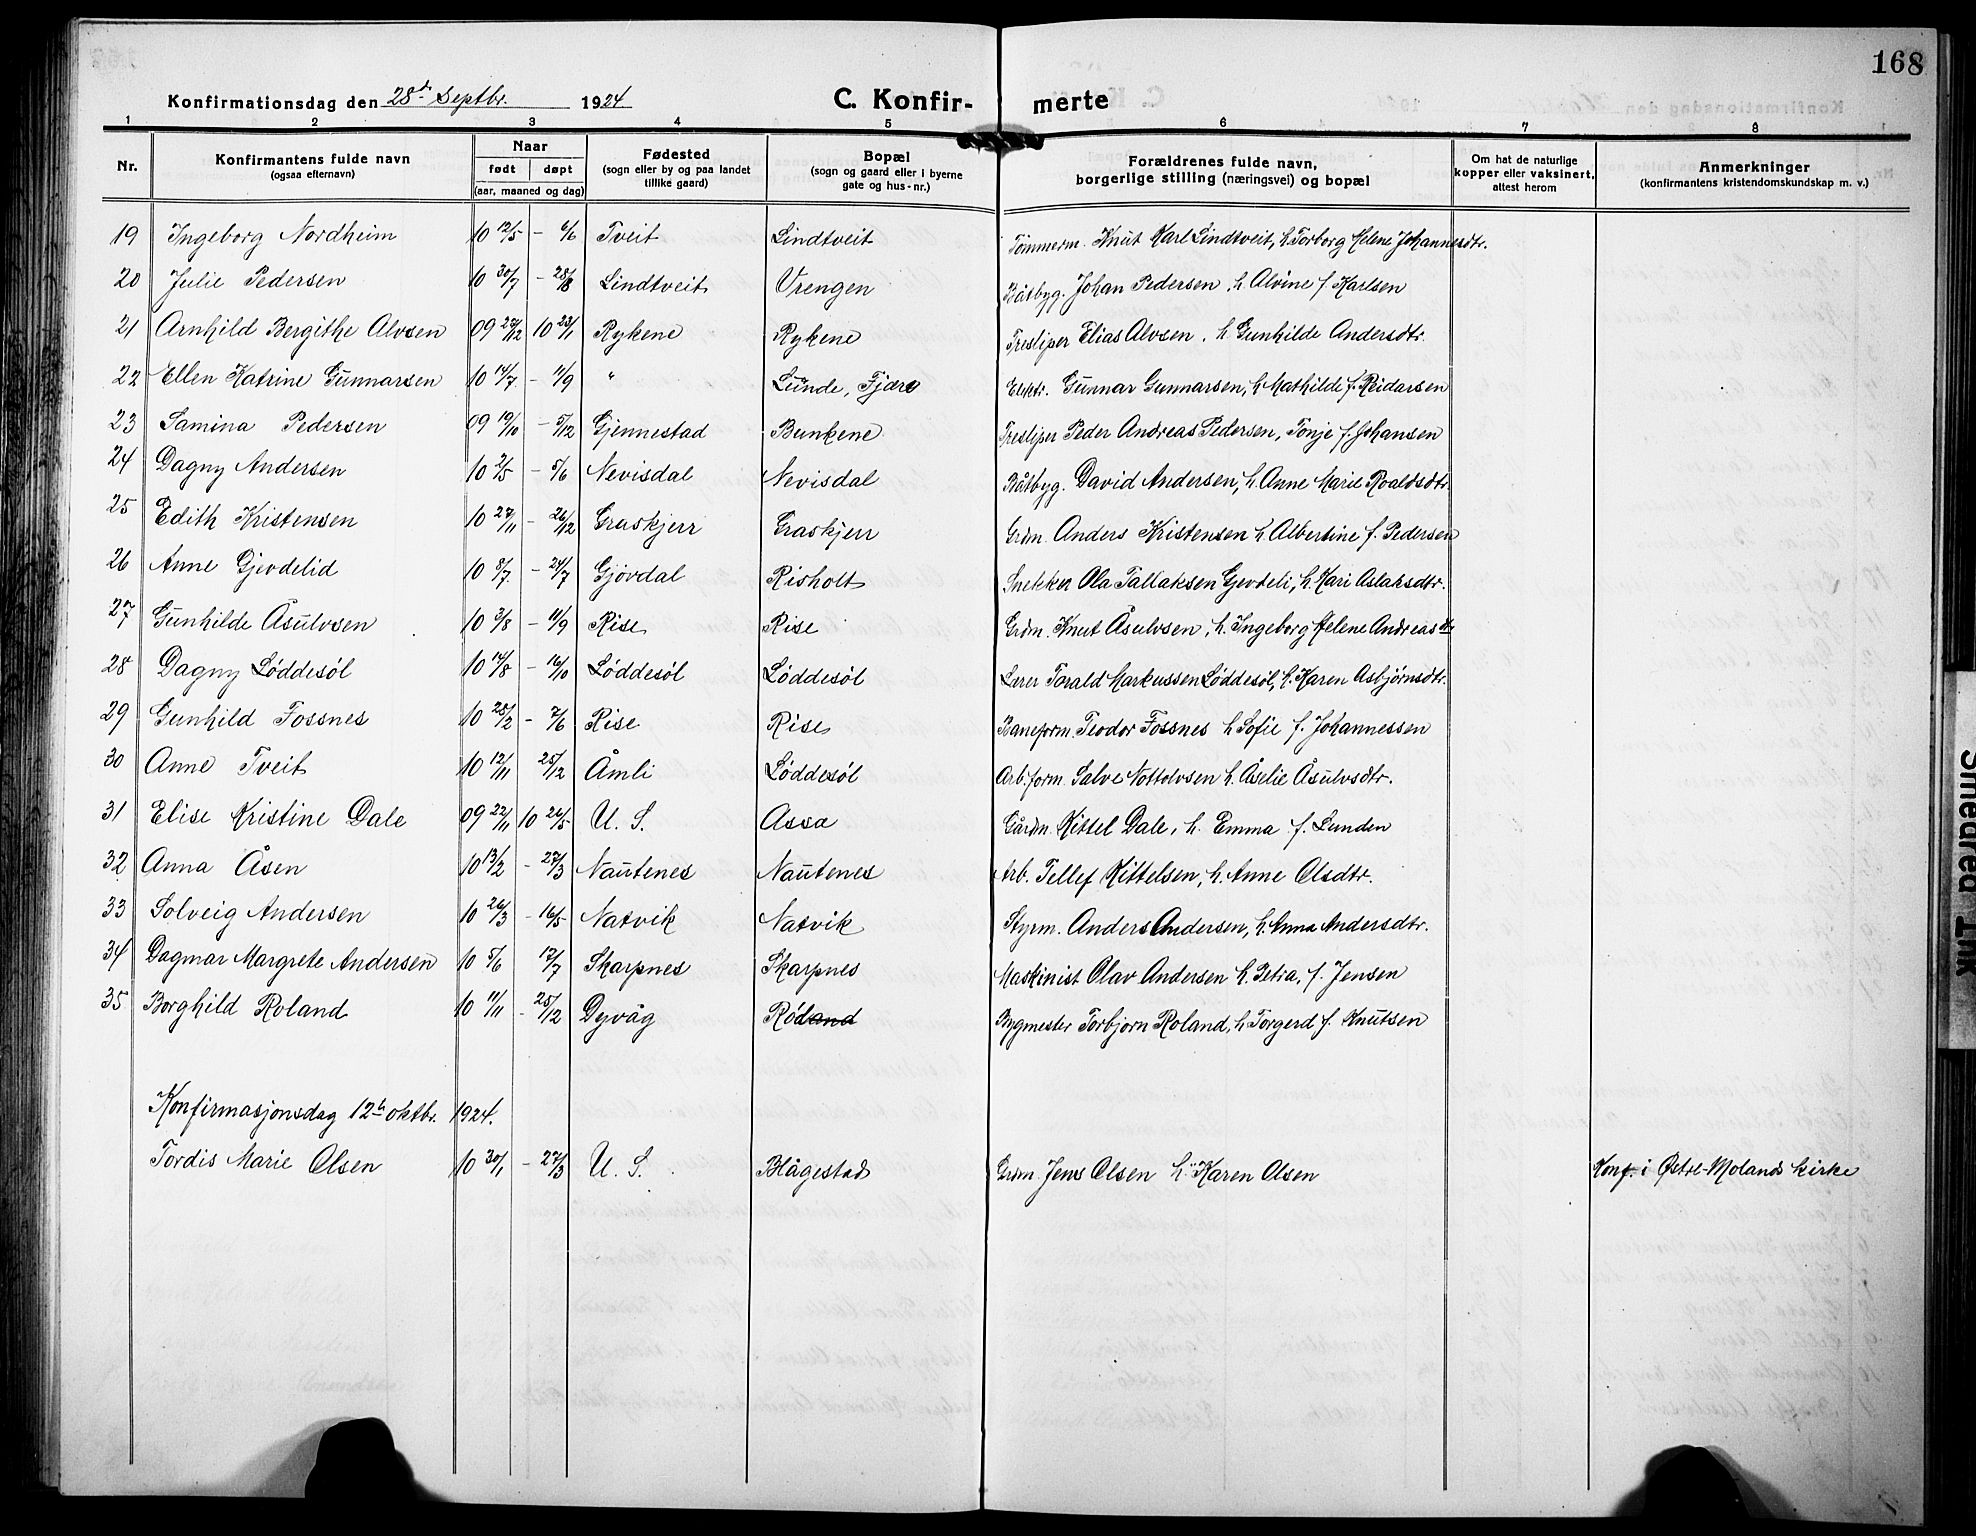 168
Konfirmationsdag den 28de Septbr. 1924 C. Konfir- merte
1 2 3 4 5 6 7 8
Nr. Konfirmantens fulde navn (ogsaa efternavn) Naar født døpt (aar, maaned og dag) Fødested (sogn eller by og paa landet tillike gaard) Bopæl (sogn og gaard eller i byerne gate og hus-nr.) Forældrenes fulde navn, borgerlige stilling (næringsvei) og bopæl Om hat de naturlige kopper eller vaksinert, attest herom Anmerkninger (konfirmantens kristendomskundskap m. v.)
19 Ingeborg Nordheim 10 12/5 - 6/6 Tveit Lindtveit Tømmerm. Knut Karl Lindtveit, h. Torborg Helene Johannesdtr.
20 Julie Pedersen 10 30/7 - 28/8 Lindtveit Vrengen Båtbyg. Johan Pedersen, h. Alvine f. Karlsen
21 Arnhild Bergithe Alvsen 09 29/12 10 23/1 Rykene Rykene Tresliper Elias Alvsen, h. Gunhilde Andersdtr.
22 Ellen Katrine Gunnarsen 10 14/7 - 11/9 " Lunde, Fjære Elektr. Gunnar Gunnarsen, h. Mathilde f. Reidarsen
23 Samina Pedersen 09 19/10 - 5/12 Gjennestad Bunkene Tresliper Peder Andreas Pedersen, Tonje f. Johansen
24 Dagny Andersen 10 2/5 - 5/6 Nevisdal Nevisdal Båtbyg. David Andersen, h. Anne Marie Roaldsdtr.
25 Edith Kristensen 10 27/11 - 26/12 Graskjerr Graskjerr Grdm. Anders Kristensen h. Albertine f. Pedersen
26 Anne Gjevdelid 10 8/7 - 24/7 Gjøvdal Risholt Snekker Ola Tallaksen Gjevdeli, h. Kari Aslaksdtr.
27 Gunhilde Åsulvsen 10 3/8 - 11/9 Rise Rise Grdm. Knut Åsulvsen, h. Ingeborg Helene Andreasdtr
28 Dagny Løddesøl 10 14/8 - 16/10 Løddesøl Løddesøl Lærer Torald Markussen Løddesøl, h. Karen Asbjørnsdtr.
29 Gunhild Fossnes 10 25/2 - 7/6 Rise Rise Baneform. Teodor Fossnes h. Sofie f. Johannessen
30 Anne Tveit 10 12/11 25/12 Åmli Løddesøl Arb.form. Salve Nottolvsen h. Åselie Åsulvsdtr.
31 Elise Kristine Dale 09 22/11 10 26/5 U. S. Assa Gårdm. Kittel Dale, h. Emma f. Lunden
32 Anna Åsen 10 13/2 - 27/3 Nautenes Nautenes Arb. Tellef Kittelsen, h. Anne Olsdtr.
33 Solveig Andersen 10 26/3 - 16/5 Natvik Natvik Styrm. Anders Andersen, h. Anna Andersdtr.
34 Dagmar Margrete Andersen 10 5/6 17/7 Skarpnes Skarpnes Maskinist Olav Andersen h. Petra, f. Jensen
35 Borghild Roland 10 11/11 - 25/12 Dyvåg Rødand Bygmester Torbjørn Roland, h. Torgerd f. Knutsen
Konfirmasjonsdag 12te oktbr. 1924.
Tordis Marie Olsen 10 30/1 - 27/3 U. S. Blågestad Grdm. Jens Olsen h. Karen Olsen Konf. i Østre-Molands kirke